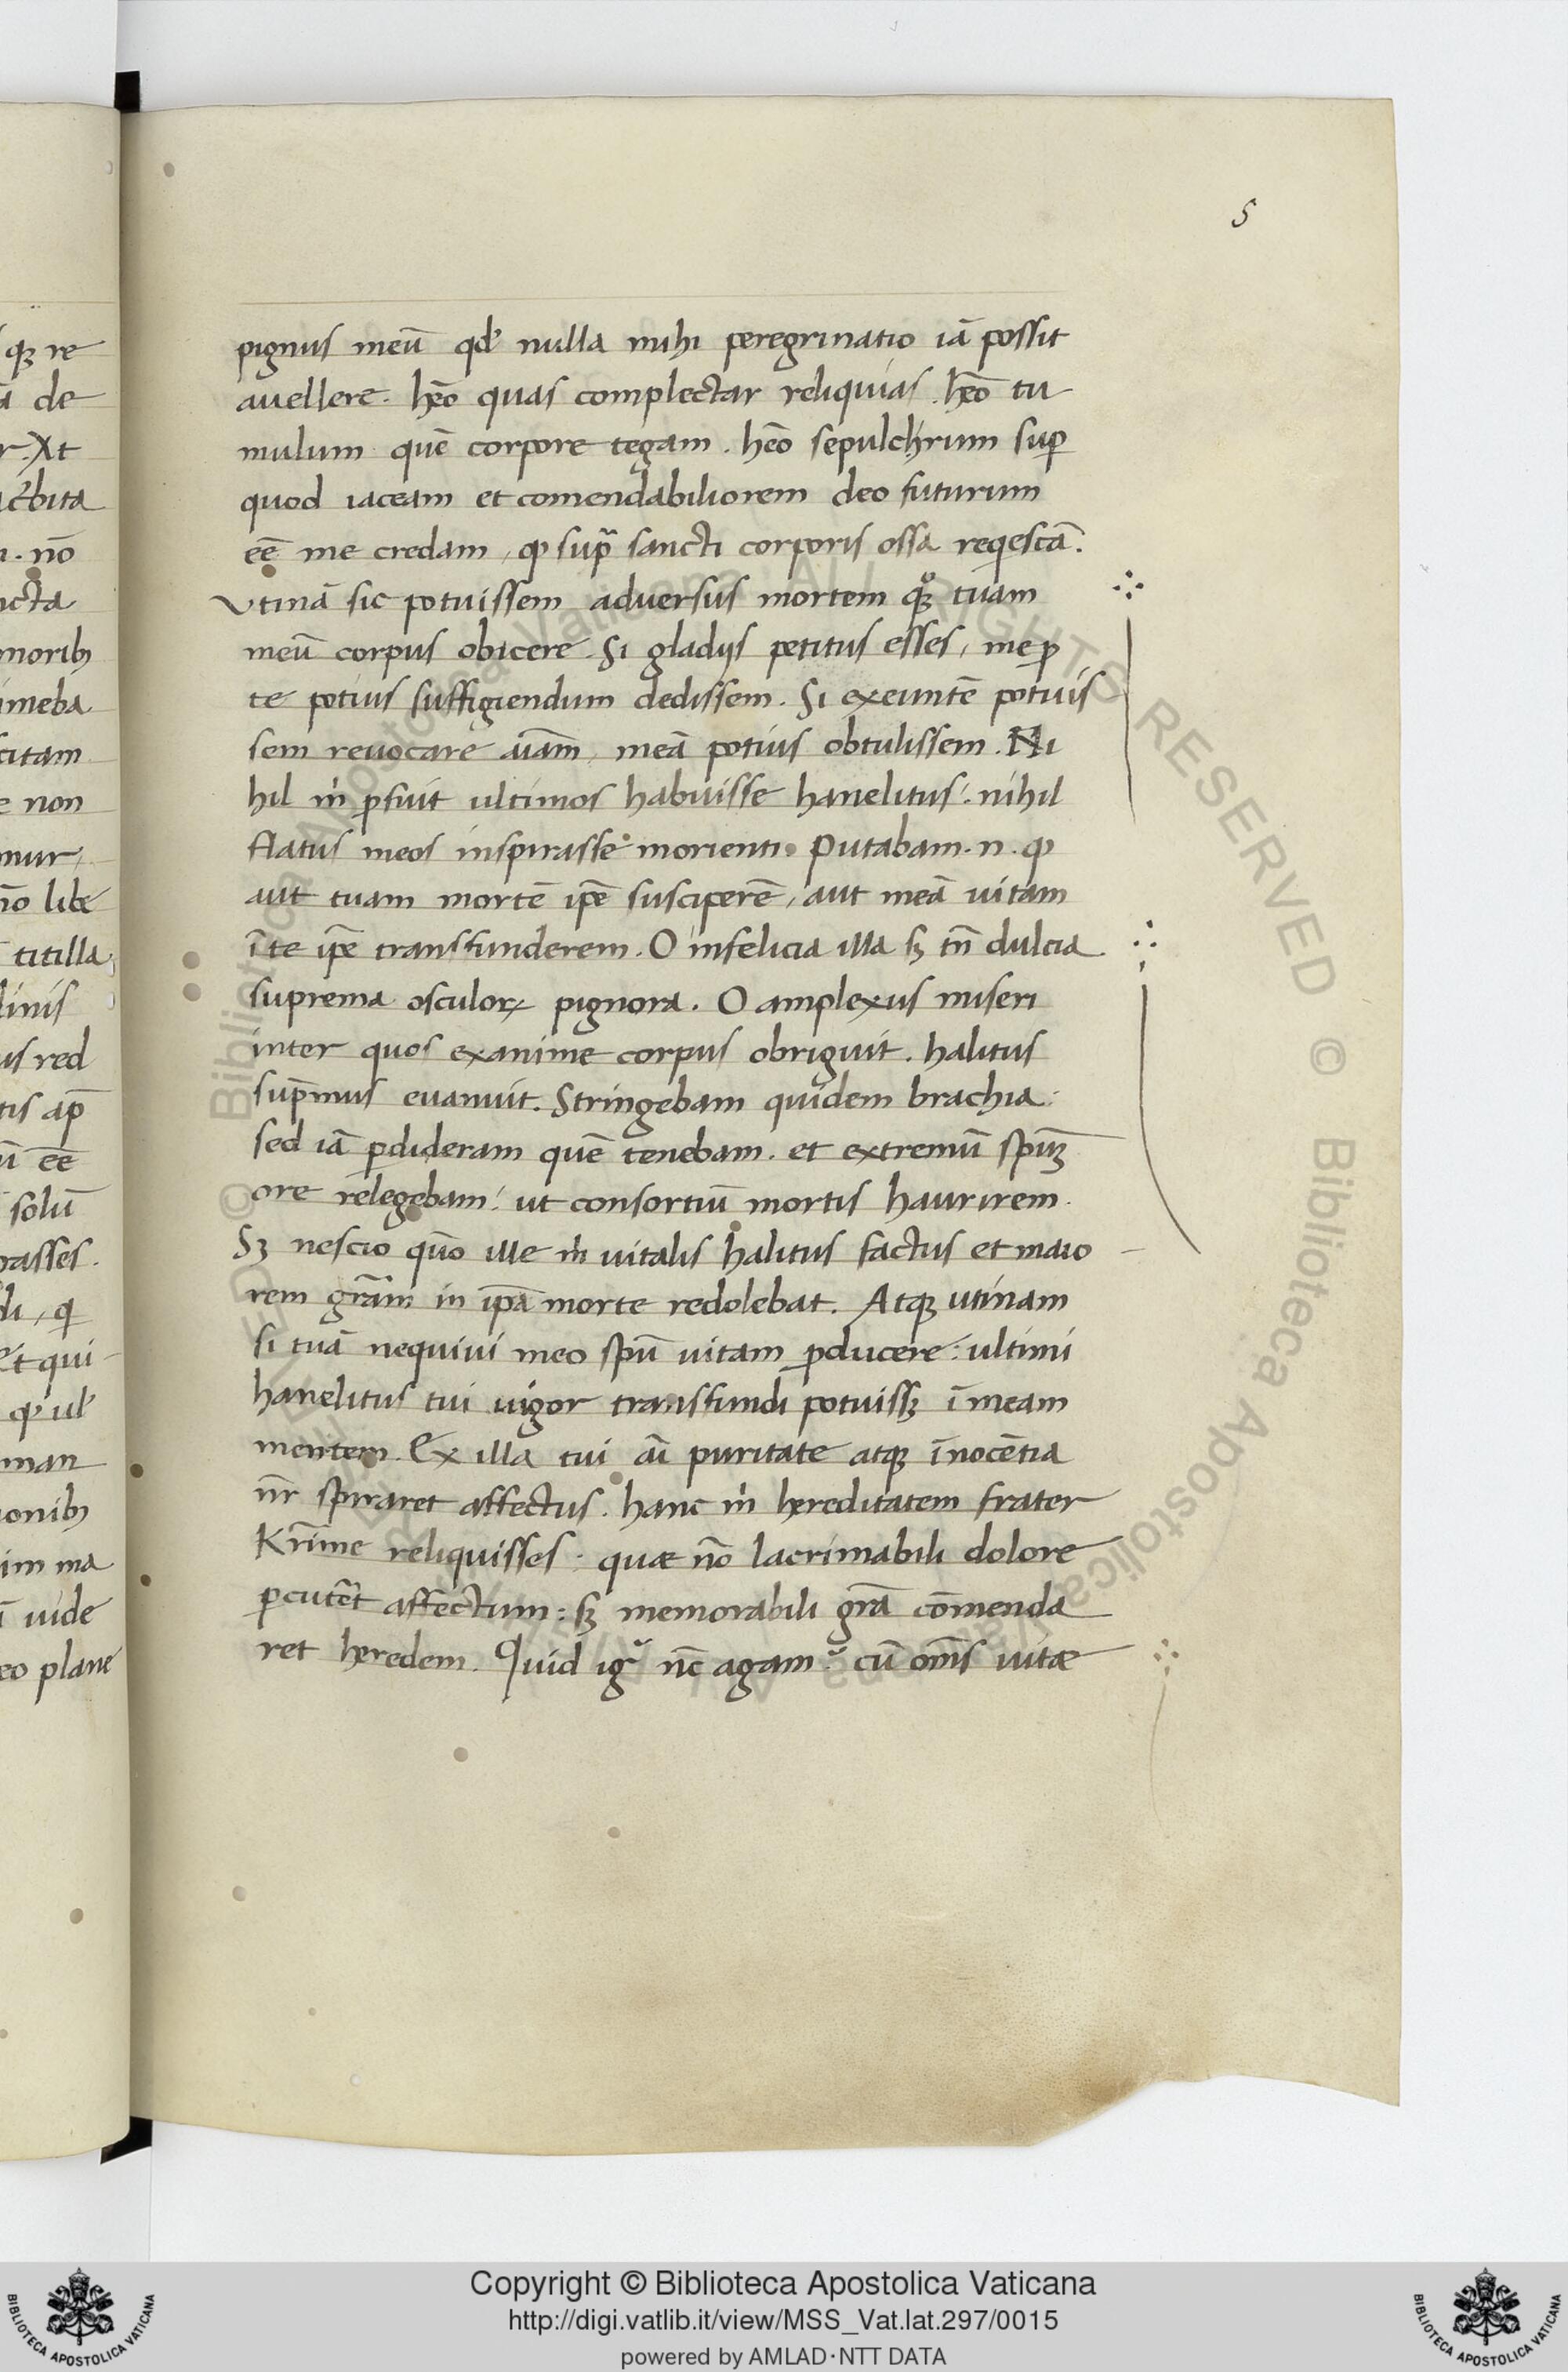 5
qꝫ re
de
r. Xt
bita
. nō
cta
moribꝫ
imeba
citam
e non
mur
nō libe
titilla
linis
us red
tis ap̄
ū eē
solū
rasses.
di, q
et qui
man
ionibꝫ
im ma
ī uide
eo plane
pignus meū qđ nulla mihi peregrinatio iā possit
auellere. hēo quas complectar reliquias. hēo tu
mulum quē corpore tegam. hēo sepulchrum suꝑ
quod iaceam et comendabiliorem deo futurum
eē me credam, ꝙ supᷓ sancti corporis ossa reqescā.
Vtinā sic potuissem aduersus mortem qͦꝫ tuam
meū corpus obicere. Si gladijs petitus esses, me ꝓ
te potius suffigiendum dedissem. Si exeuntē potuis
sem reuocare aīam, meā potius obtulissem. Ni
hil m̍ ꝓfuit ultimos habuisse hanelitus: nihil
flatus meos inspirasse morienti. Putabam .n. ꝙ
aut tuam mortē ip̄e susciperē, aut meā uitam
ī te ip̄e transfunderem. O infelicia illa sꝫ tn̄ dulcia
suprema osculoꝝ pignora. O amplexus miseri
inter quos exanime corpus obriguit. halitus
sup̄mus euanuit. Stringebam quidem brachia:
sed iā ꝑdideram quē tenebam. et extremū sp̄uꝫ
ore relegebam: ut consortiū mortis haurirem.
Sꝫ nescio quō ille m̍ uitalis halitus factus et maio
rem grām in ip̄a morte redolebat. Atqꝫ utinam
si tuā nequiui meo sp̄u uitam ꝓducere: ultimi
hanelitus tui uigor transfundi potuissꝫ ī meam
mentem. Ex illa tui aī puritate atqꝫ īnocētia
nr̄ spiraret affectus. hanc m̍ hereditatem frater
Kr̄ime reliquisses. quæ nō lacrimabili dolore
ꝑcutēt affectum: sꝫ memorabili grā cōmenda
ret heredem. Quid igͬ nc̄ agam? cū om̄s uitæ
Copyright © Biblioteca Apostolica Vaticana
http://digi.vatlib.it/view/MSS_Vat.lat.297/0015
powered by AMLAD·NTT DATA